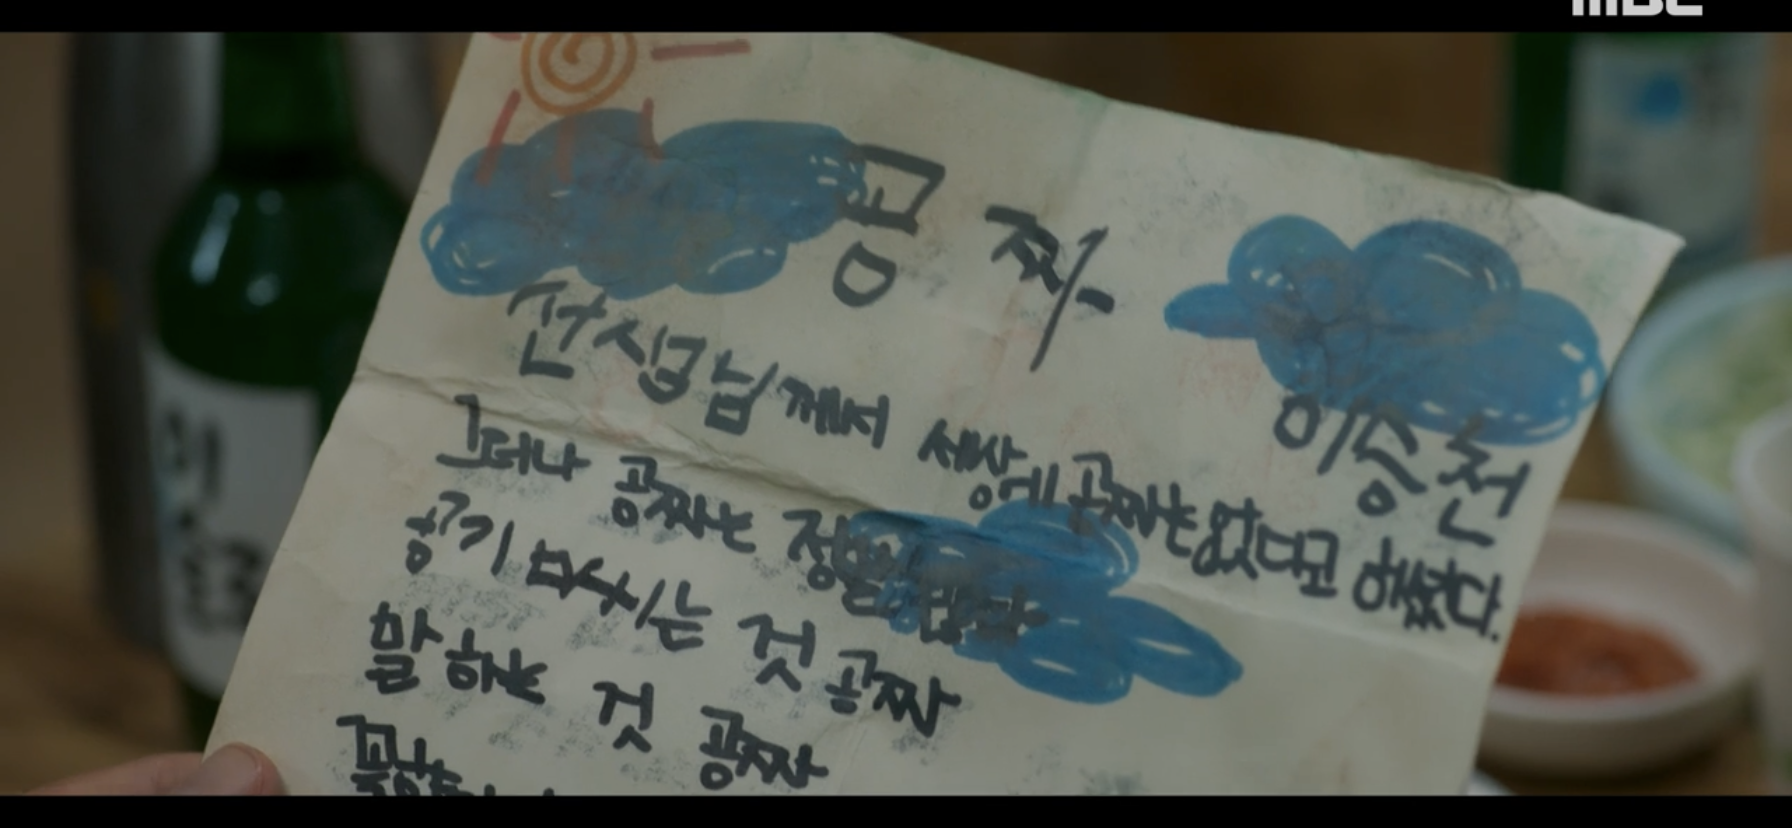 MBC
공짜
이승천
선생님께서 세상에 공짜는 없다고 하셨다.
그러나 공짜는 정말 많다
공기 마시는 것 공짜
말하는 것 공짜